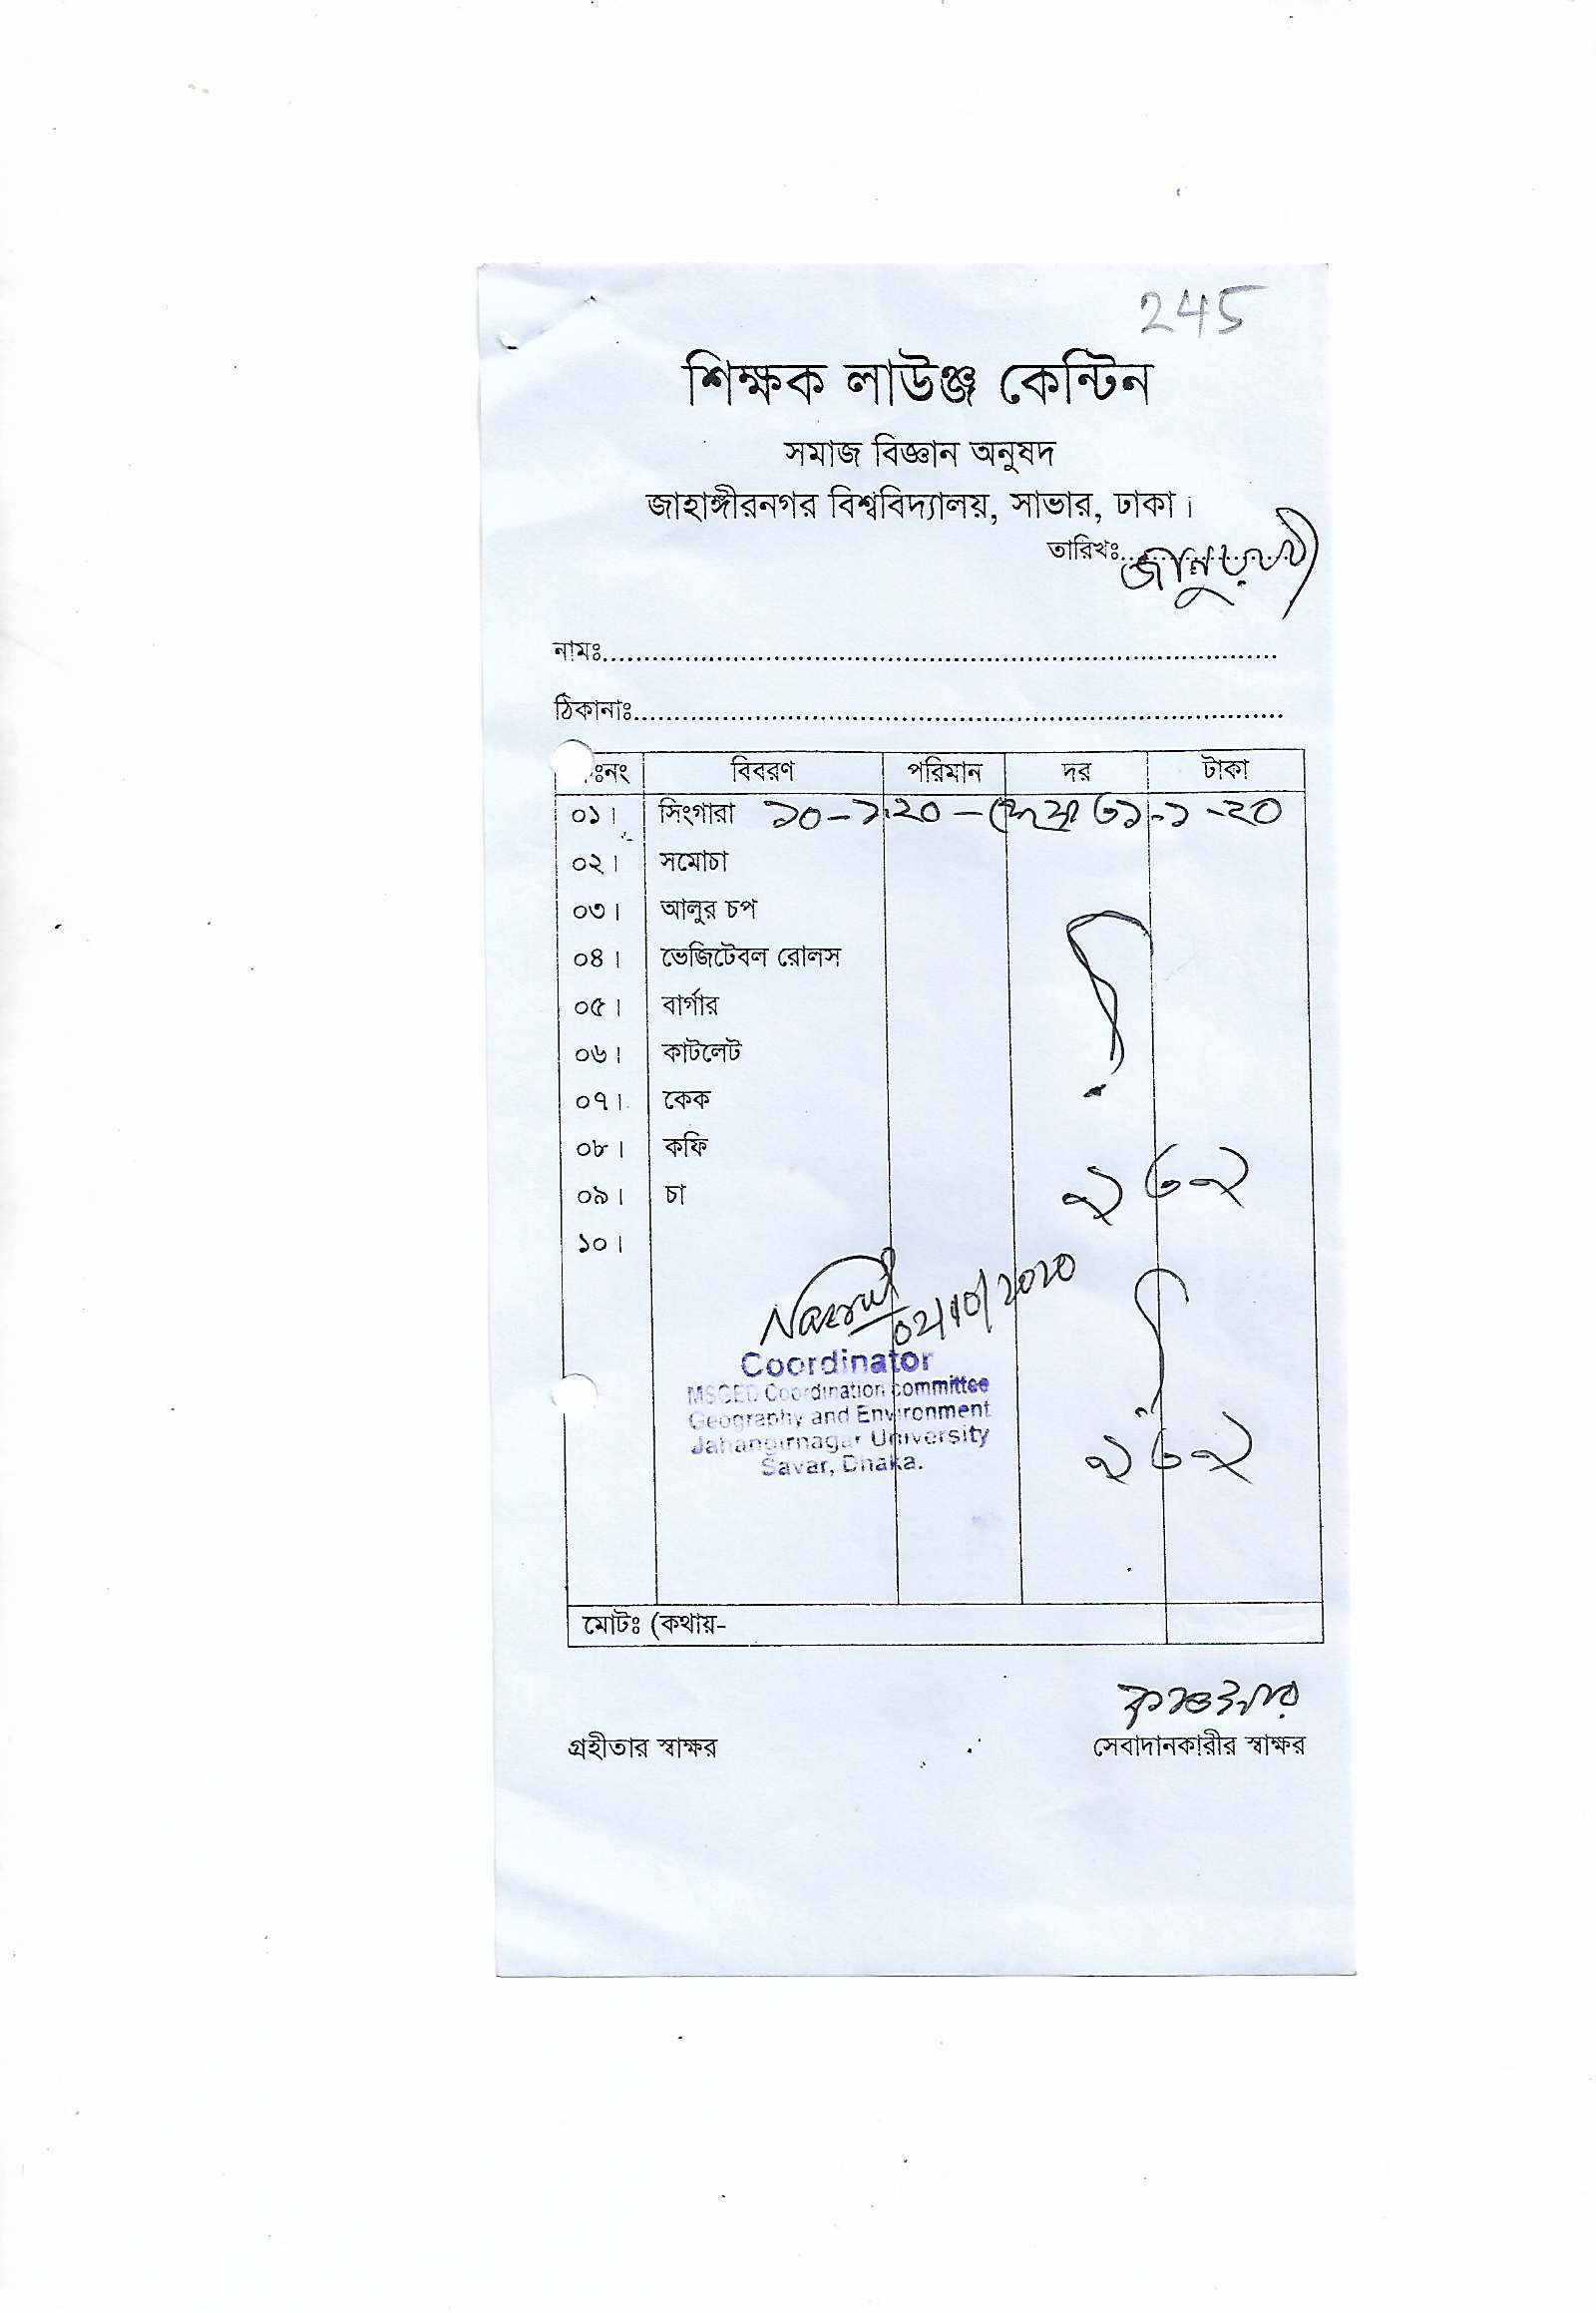 245
শিক্ষক লাউঞ্জ কেন্টিন
সমাজ বিজ্ঞান অনুষদ
জাহাঙ্গীরনগর বিশ্ববিদ্যালয়, সাভার, ঢাকা।
তারিখঃ জানুয়ারী
নামঃ
ঠিকানাঃ
ঃনং বিবরণ পরিমান দর টাকা
০১। সিংগারা ১০-১-২০ - ৩১-১-২০
০২। সমোচা
০৩। আলুর চপ
০৪। ভেজিটেবল রোলস
০৫। বার্গার
০৬। কাটলেট
০৭। কেক
০৮। কফি
০৯। চা
২৬২
১০।
02/10/2020
Coordinator
MSGED Coordination committee
Geography and Environment
Jahangirnagar University
২৬২
Savar, Dhaka.
মোটঃ (কথায়-
গ্রহীতার স্বাক্ষর সেবাদানকারীর স্বাক্ষর